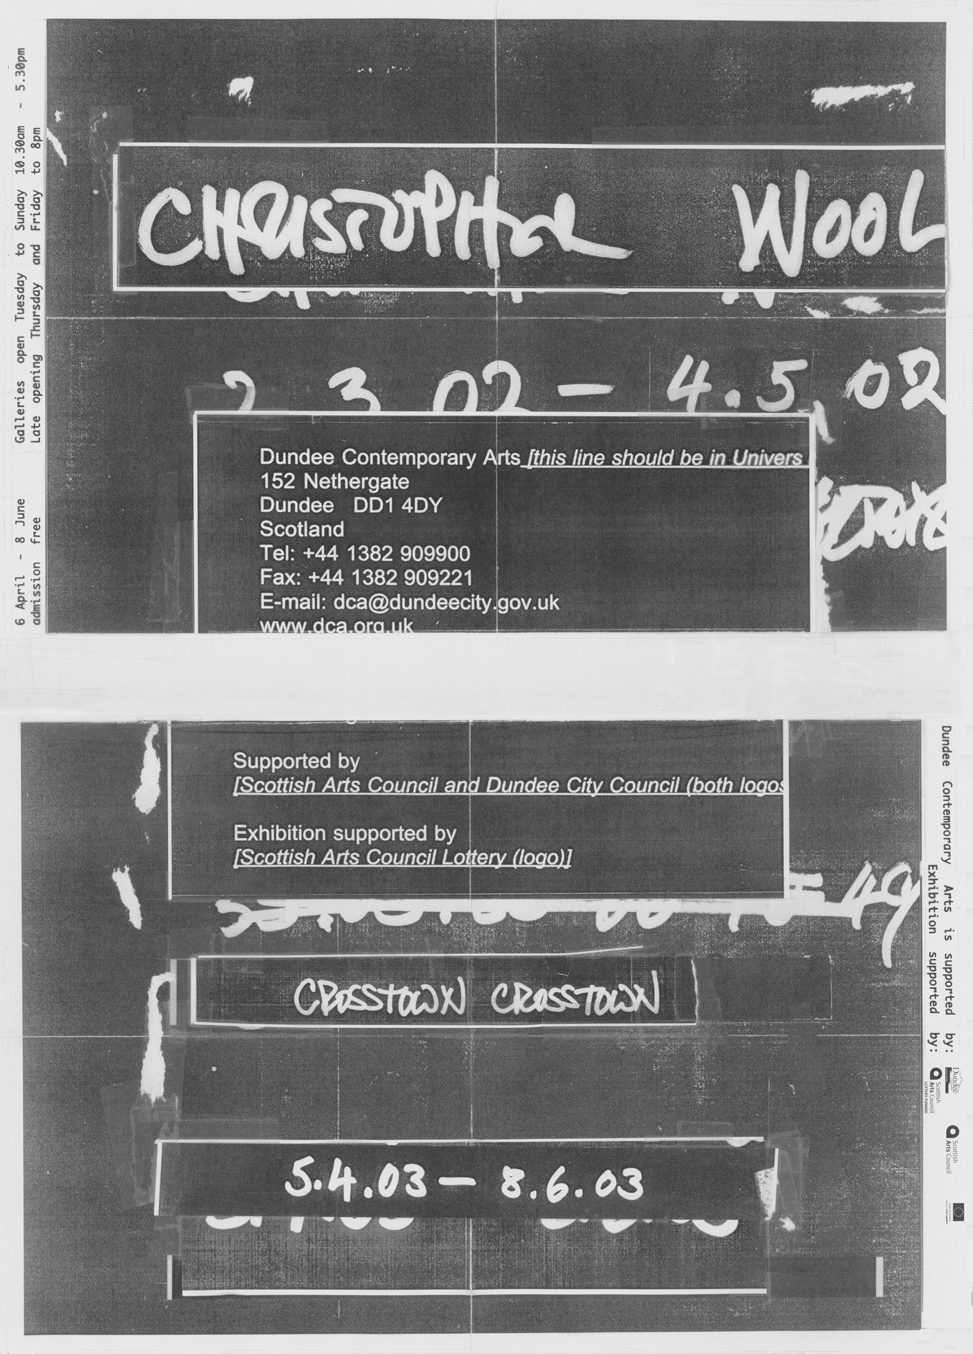 Galleries open Tuesday to Sunday 10.30am - 5.30pm
Late opening Thursday and Friday to 8pm
6 April - 8 June
admission free
CHRISTOPHER WOOL
2 3 02 – 4.5.02
Dundee Contemporary Arts [this line should be in Univers
152 Nethergate
Dundee DD1 4DY
Scotland
Tel: +44 1382 909900
Fax: +44 1382 909221
E-mail: dca@dundeecity.gov.uk
www.dca.org.uk
Supported by
[Scottish Arts Council and Dundee City Council (both logos
Exhibition supported by
[Scottish Arts Council Lottery (logo)]
49
CROSSTOWN CROSSTOWN
5.4.03 – 8.6.03
Dundee Contemporary Arts is supported by:
Exhibition supported by:
Dundee
Scottish
Arts Council
Scottish
Arts Council